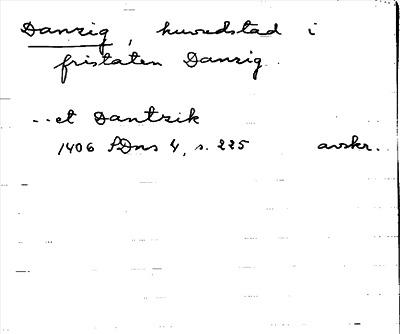 Danzig, huvudstad i
fristaten Danzig.
..et Dantzik
1406 SDns 4, s. 225 avskr.